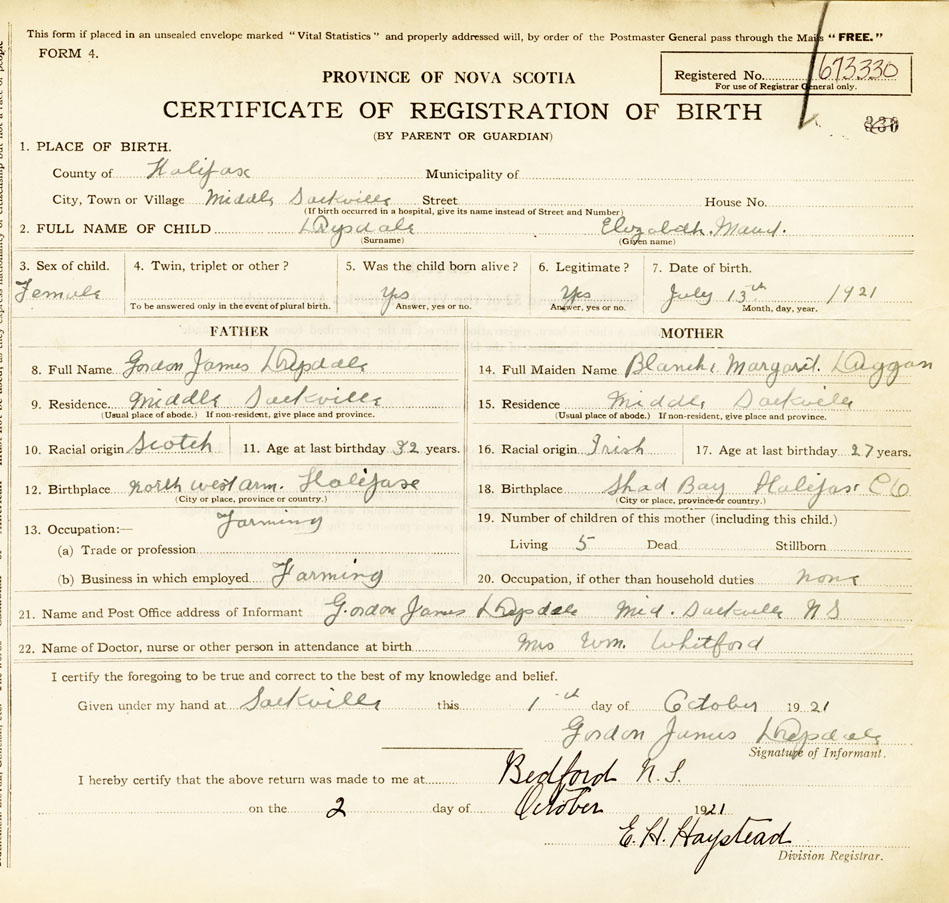 This form if placed in an unsealed envelope marked "Vital Statistics" and properly addressed will, by order of the Postmaster General pass through the Mails "FREE."
FORM 4.
PROVINCE OF NOVA SCOTIA
Registered No. 673330
For use of Registrar General only.
CERTIFICATE OF REGISTRATION OF BIRTH
330
(BY PARENT OR GUARDIAN)
1. PLACE OF BIRTH.
County of Halifax Municipality of
City, Town or Village Middle Sackville Street House No.
(If birth occurred in a hospital, give its name instead of Street and Number)
2. FULL NAME OF CHILD Drysdale Elizabeth Maud.
(Surname) (Given name)
3. Sex of child. 4. Twin, triplet or other? 5. Was the child born alive? 6. Legitimate? 7. Date of birth.
Female Yes Yes July 13th 1921
To be answered only in the event of plural birth. Answer, yes or no. Answer, yes or no. Month, day, year.
FATHER MOTHER
8. Full Name Gordon James Drysdale 14. Full Maiden Name Blanche Margaret. Duggan
9. Residence Middle Sackville 15. Residence Middle Sackville
(Usual place of abode.) If non-resident, give place and province. (Usual place of abode.) If non-resident, give place and province.
10. Racial origin Scotch 11. Age at last birthday 32 years. 16. Racial origin Irish 17. Age at last birthday 27 years.
12. Birthplace North West Arm. Halifax 18. Birthplace Shad Bay Halifax Co
(City or place, province or country.) (City or place, province or country.)
13. Occupation:— Farming 19. Number of children of this mother (including this child.)
(a) Trade or profession Living 5 Dead Stillborn
(b) Business in which employed Farming 20. Occupation, if other than household duties none
21. Name and Post Office address of Informant Gordon James Drysdale Mid. Sackville N S
22. Name of Doctor, nurse or other person in attendance at birth Mrs Wm. Whitford
I certify the foregoing to be true and correct to the best of my knowledge and belief.
Given under my hand at Sackville this 1th day of October 1921
Gordon James Drysdale
Signature of Informant.
I hereby certify that the above return was made to me at Bedford N.S.
on the 2 day of October 1921
E. H. Haystead
Division Registrar.